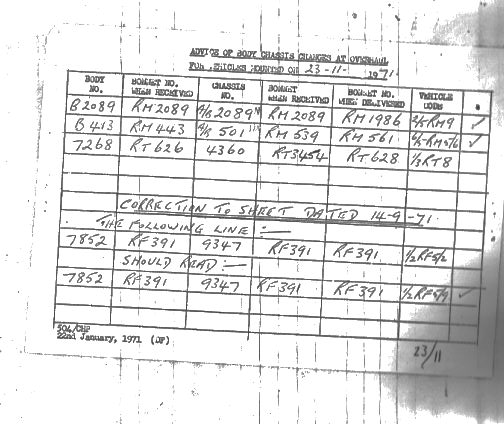 ADVICE OF BODY CHASSIS CHANGES AT OVERHAUL
FOR VEHICLES MOUNTED ON 23-11- 1971.
BODY NO. BONNET NO. WHEN RECEIVED CHASSIS NO. BONNET WHEN RECEIVED BONNET NO. WHEN DELIVERED VEHICLE CODE
B2089 RM2089 2089 RM2089 RM1986 2/5RM9 ✓
B413 RM443 501 RM539 RM561 ✓
7268 RT626 4360 RT3454 RT628 1/3RT8
CORRECTION TO SHEET DATED 14-9-71.
THE FOLLOWING LINE:—
7852 RF391 9347 RF391 RF391 1/2RF5/2
SHOULD READ:—
7852 RF391 9347 RF391 RF391 1/2RF5/9 ✓
504/CHP
22nd January, 1971 (DF)
23/11